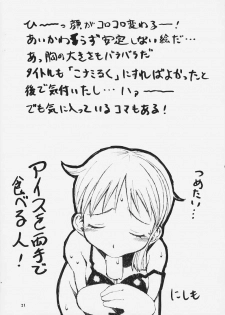 ひーっ顔がコロコロ変わるー!
あいかわらず安定しない絵だ…
あっ胸の大きさもバラバラだ
タイトルも「こナミるく」にすればよかったと
後で気付いたし…ハァー
でも気に入っているコマもある!
つめたい…
アイスを両手で
食べる人!
にしも
21